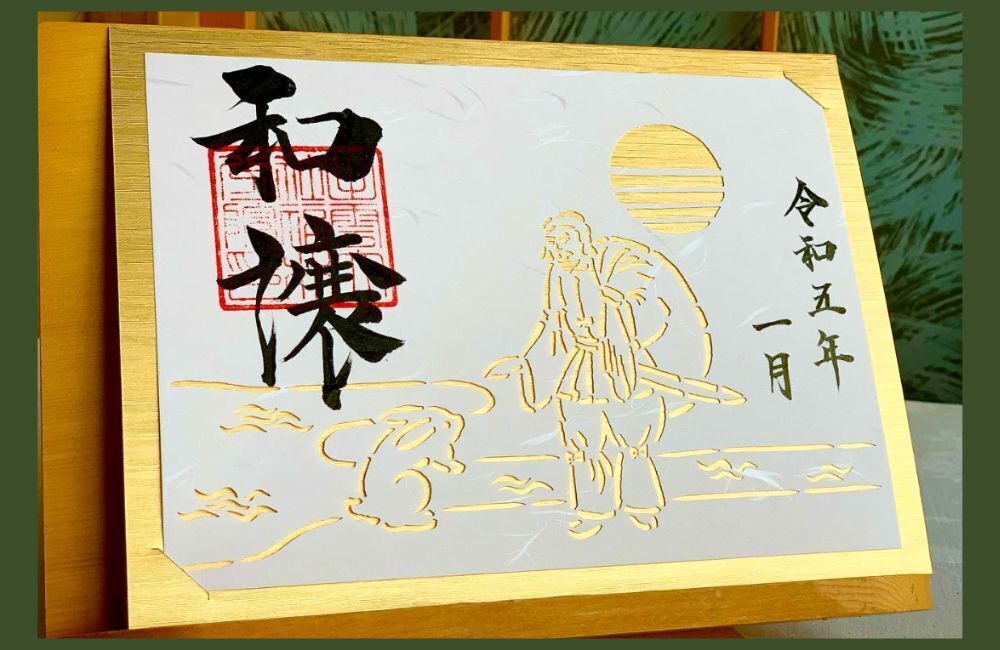 令和五年
一月
和譲